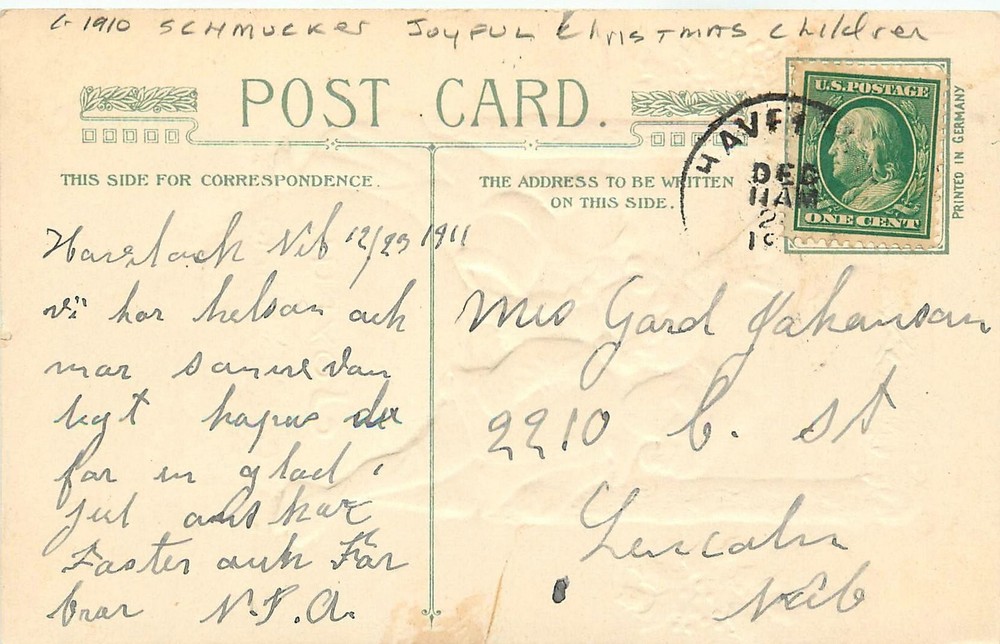 c 1910 SCHMUCKER JOYFUL ChrISTMAS Children
POST CARD.
THIS SIDE FOR CORRESPONDENCE.
THE ADDRESS TO BE WRITTEN
ON THIS SIDE.
U.S. POSTAGE
ONE CENT
PRINTED IN GERMANY
DEC
11AM
Havelock Neb 12/23 1911
vi har helsan ock
mar samre van
ligt hopas du
far en glad
jul onskar
Faster ock Far
bror N.P.A.
Mrs Gard Johanson
2210 C. St
Lincoln
Neb